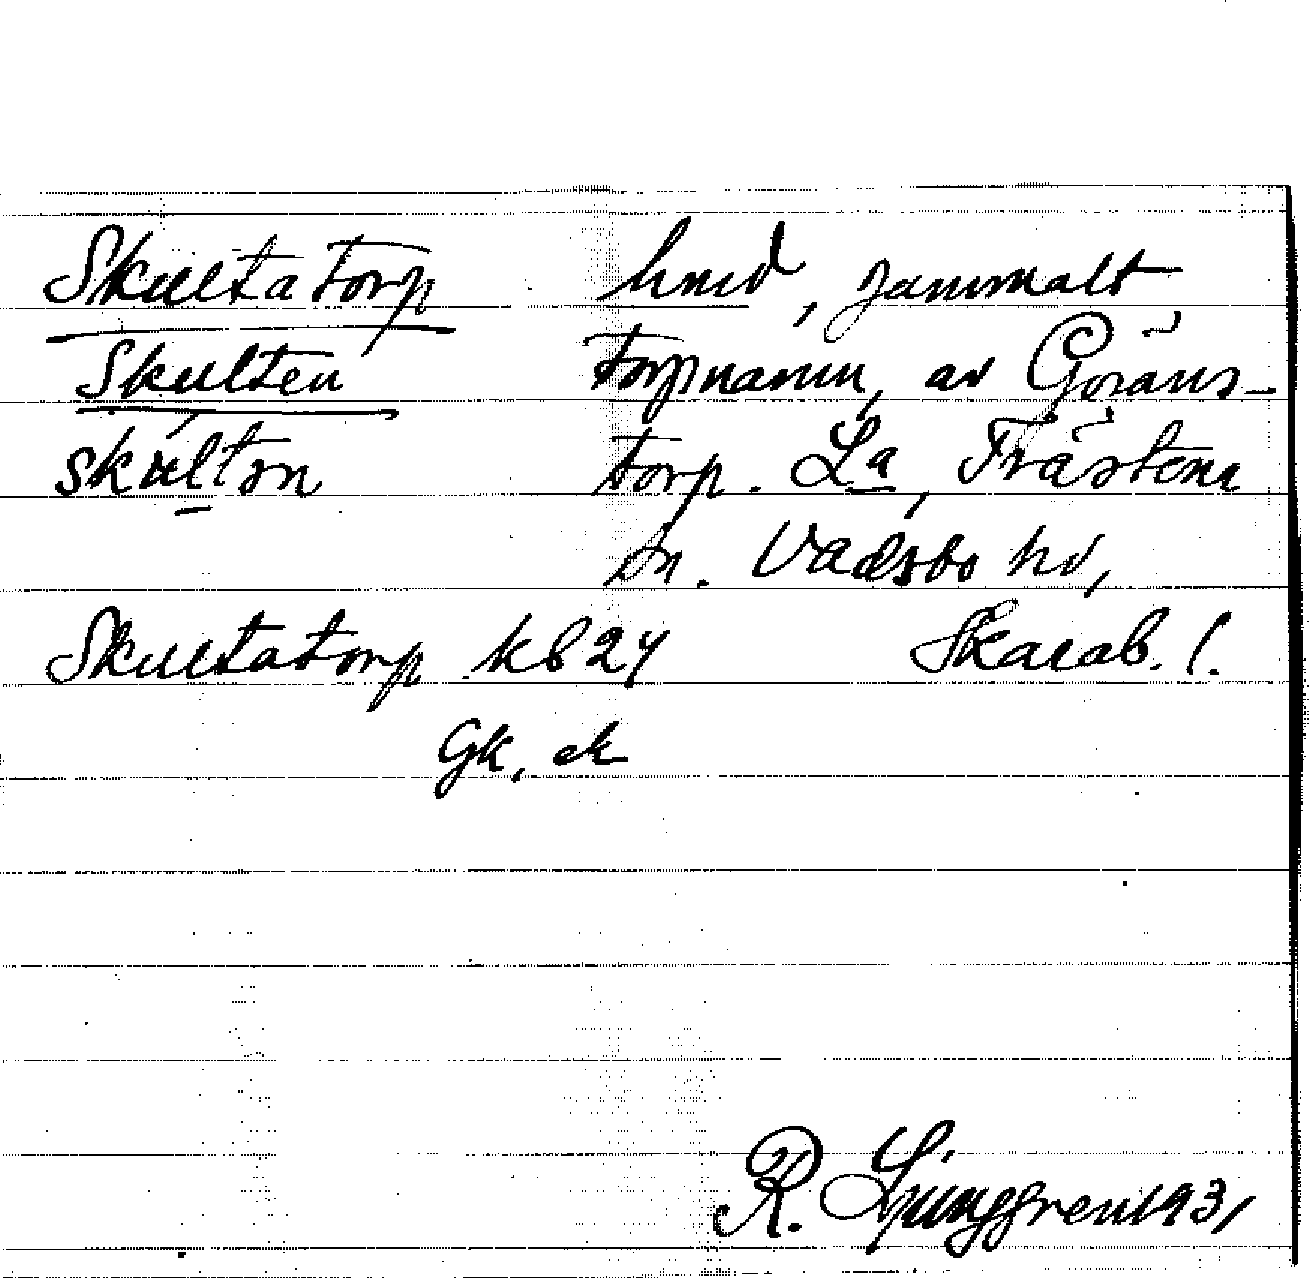 Skultatorp hmd, gammalt
Skulten torpnamn, av Görans-
skúltn torp. La, Fräkstena
sn. Vadsbo hd,
Skultatorp kb 24 Skarab. l.
Gk, ek
R. Ljunggren 1931